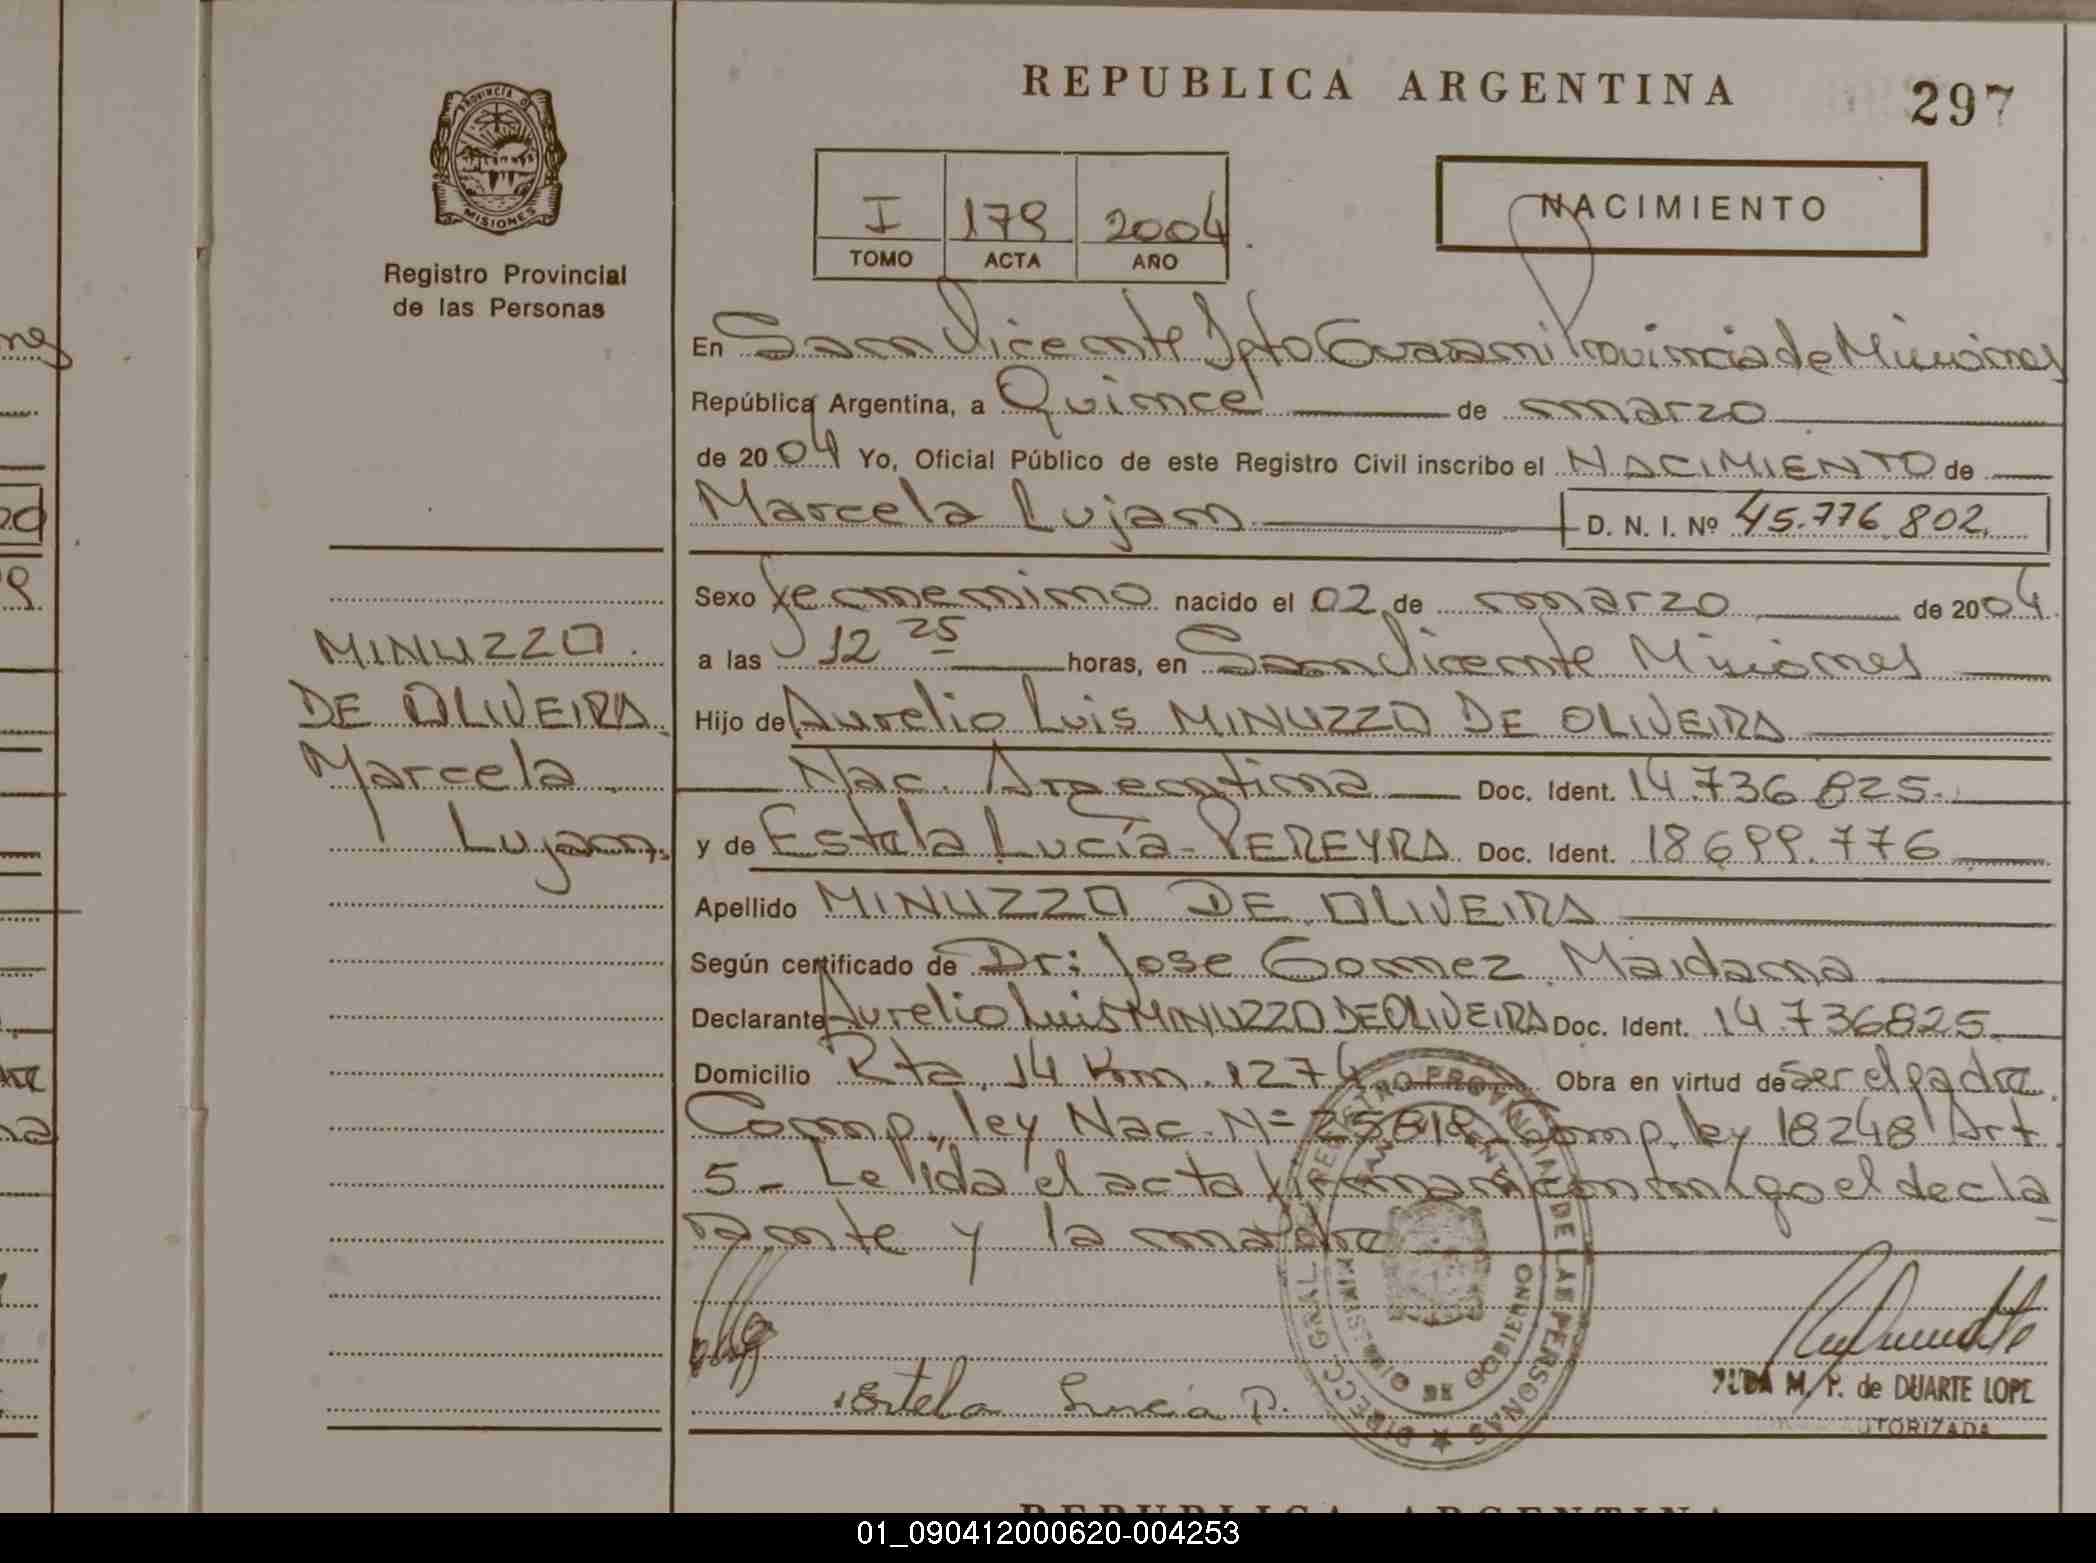 REPUBLICA ARGENTINA
297
PROVINCIA DE
MISIONES
Registro Provincial
de las Personas
I 179 2004
TOMO ACTA AÑO
NACIMIENTO
En San Vicente Dpto Guarani Provincia de Misiones
República Argentina, a Quince de marzo
de 2004 Yo, Oficial Público de este Registro Civil inscribo el NACIMIENTO de
Marcela Lujan D. N. I. Nº 45.776.802
Sexo femenino nacido el 02 de marzo de 2004
a las 12 25 horas, en San Vicente Misiones
Hijo de Aurelio Luis MINUZZO DE OLIVEIRA
Nac. Argentina Doc. Ident. 14.736.825.
y de Estela Lucía PEREYRA Doc. Ident. 18699.776
Apellido MINUZZO DE OLIVEIRA
Según certificado de Dr: Jose Gomez Maidana
Declarante Aurelio Luis MINUZZO DE OLIVEIRA Doc. Ident. 14.736825
Domicilio Rta. 14 Km. 1274 Obra en virtud de ser el padre
Comp. ley Nac. Nº 25.818 Comp. ley 18248 Art.
5- Leída el acta firman conmigo el decla
rante y la madre
MINUZZO
DE OLIVEIRA
Marcela
Lujan
Estela Lucia P.
DIRECC. GRAL. REGISTRO PROVINCIAL DE LAS PERSONAS
MINISTERIO DE GOBIERNO
M. P. de DUARTE LOPE
AUTORIZADA
REPUBLICA ARGENTINA
01_090412000620-004253